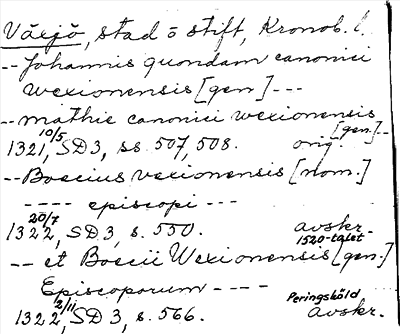 Växjö, stad o stift, Kronob. l.
-- Johannis quondam canonici
wexionensis [gen] ---
-- mathie canonici wexionensis
[gen.]--
1321 10/5, SD 3, ss. 507, 508. orig.
-- Boecius vexionensis [nom.]
---- episcopi ---
1322 20/7, SD 3, s. 550. avskr.
1520-talet
-- et Boecii Wexionensis [gen.]
Episcoporum ----
Peringsköld
1322 2/11, SD 3, s. 566. avskr.